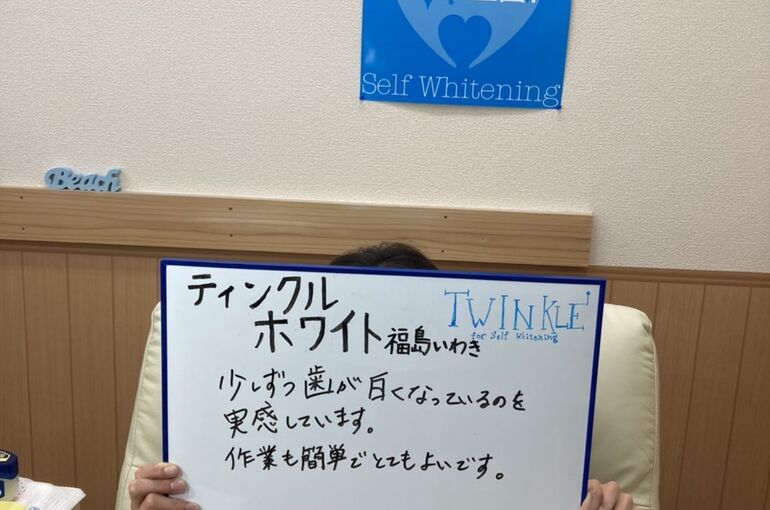 Self Whitening
Beach
ティンクル
ホワイト福島いわき
TWINKLE
for Self Whitening
少しずつ歯が白くなっているのを
実感しています。
作業も簡単でとてもよいです。